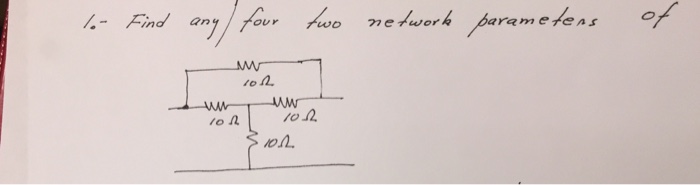 1.- Find any/four two network parameters of
10Ω
10Ω
10Ω
10Ω